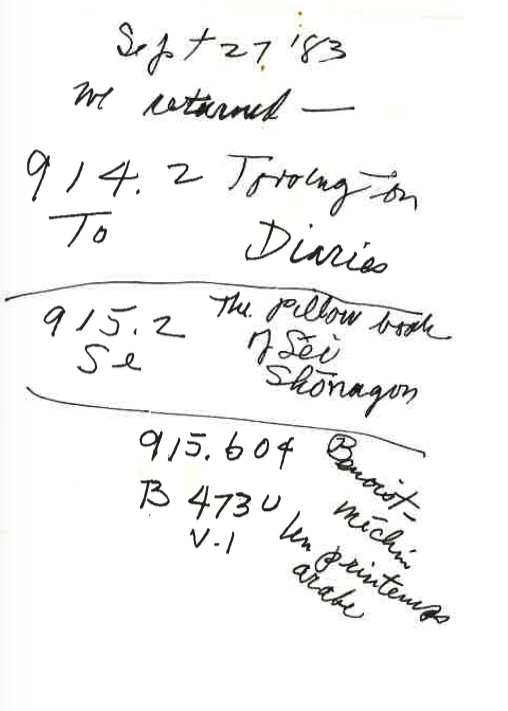 Sept 27 '83
We returned —
914.2 Torrington
To Diaries
915.2 The pillow book
Se of Sei
Shōnagon
915.604 Benoist-
B 473 U méchin
V.1 Un printemps
arabe